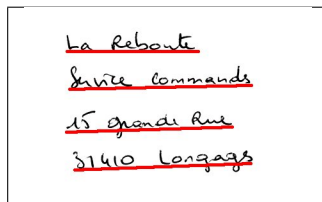 La Reboute
Service Commands
15 grande Rue
31410 Longages